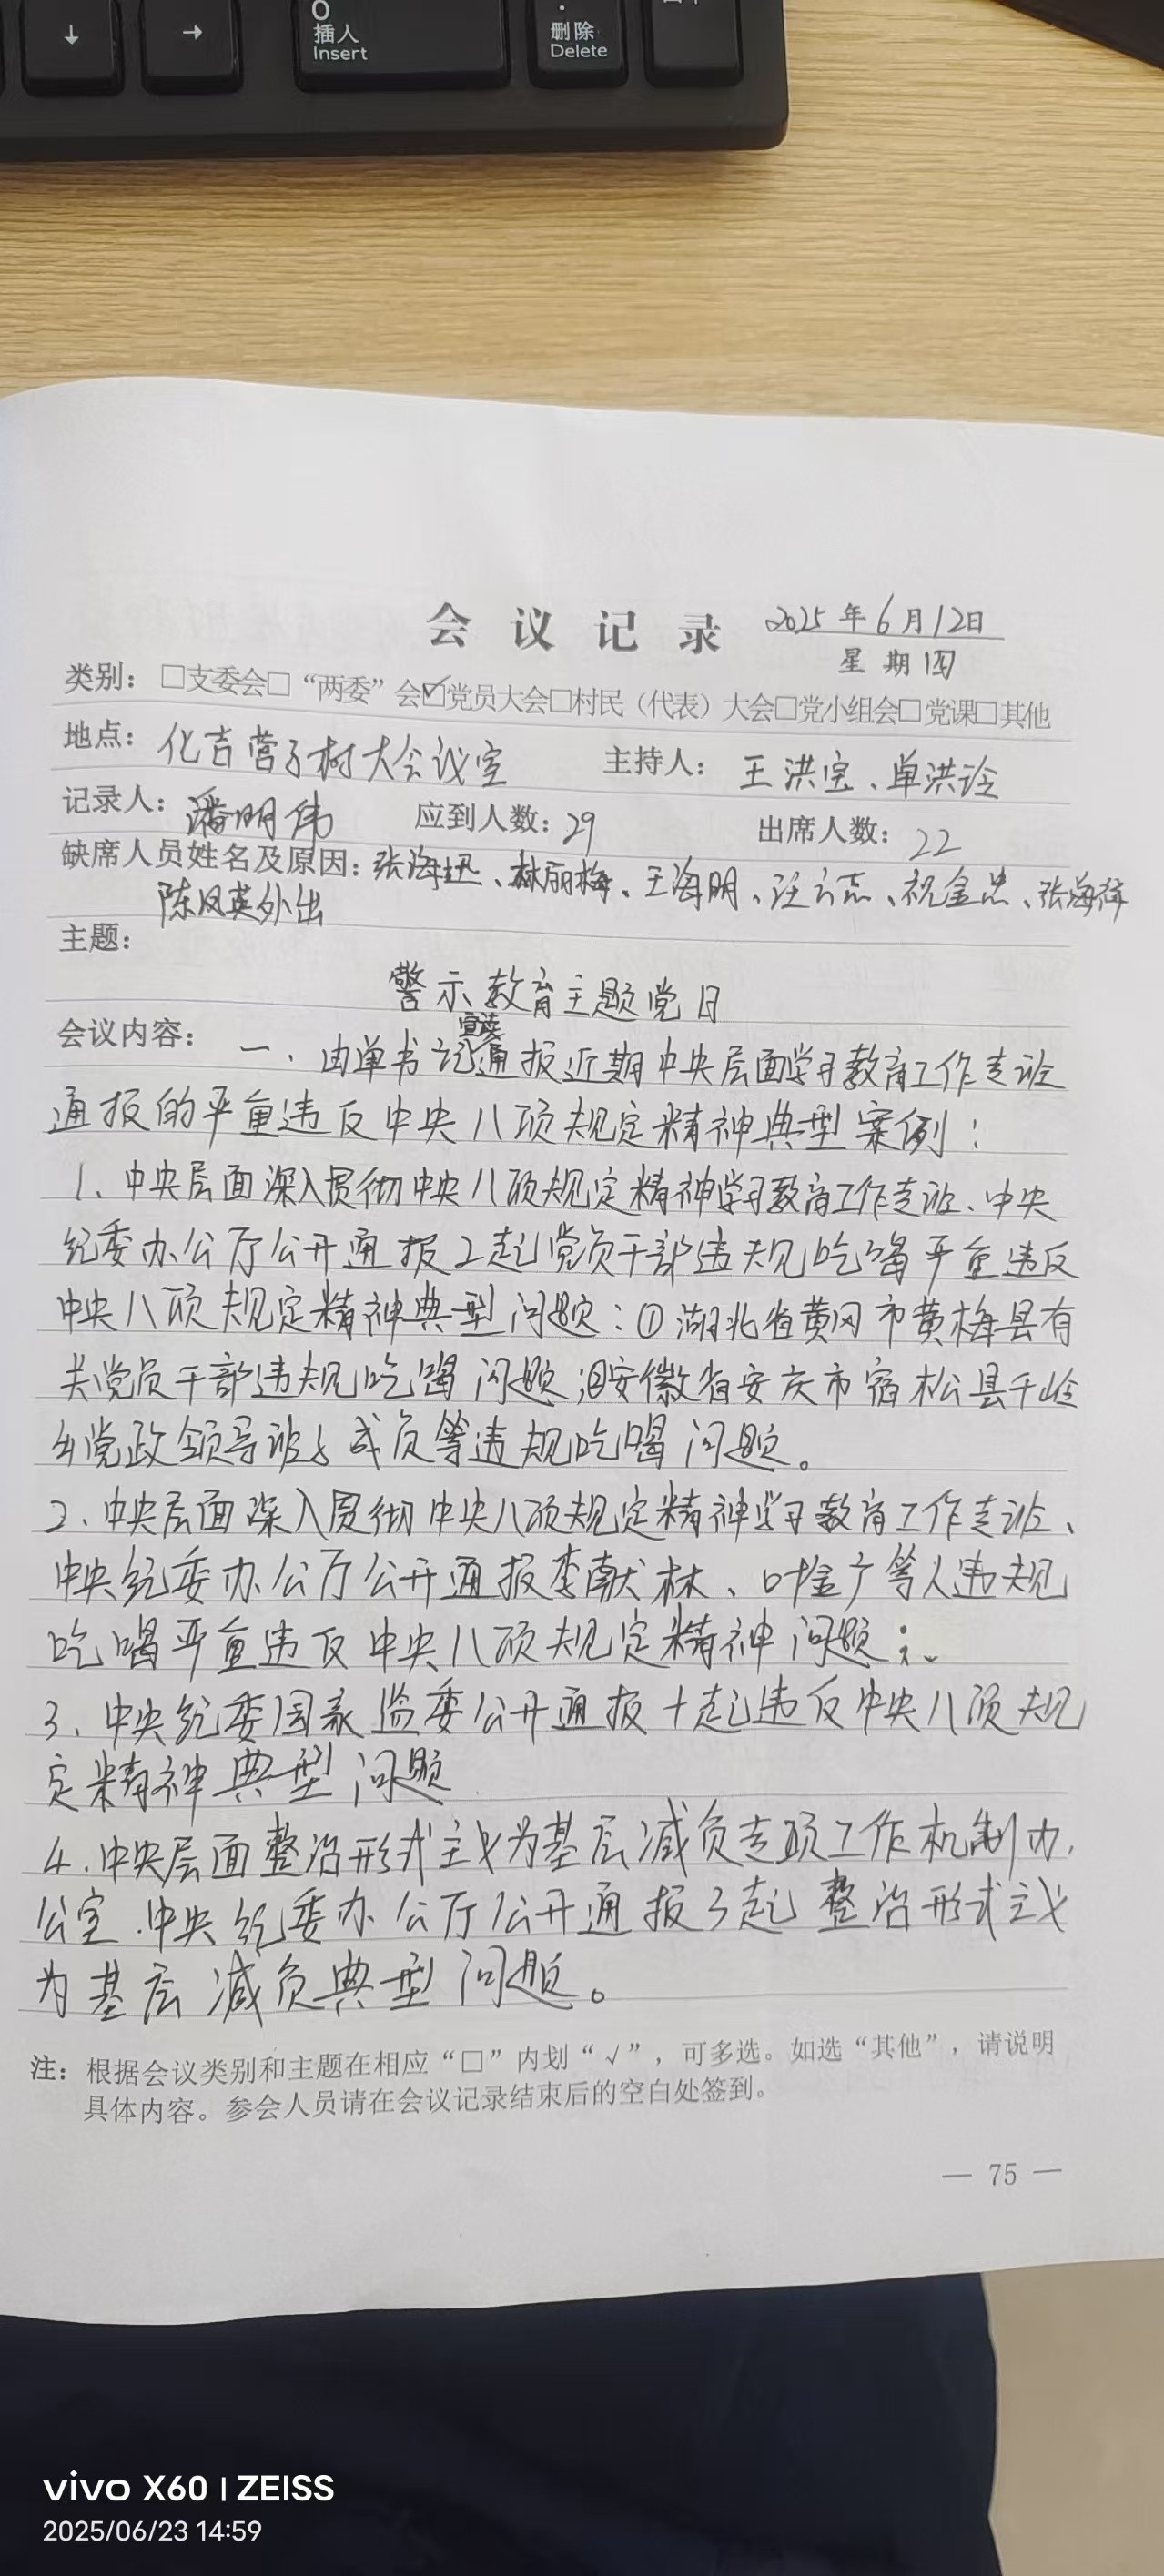 0
插入
Insert
.
删除
Delete
↓
→
会议记录 2025年6月12日
星期四
类别：□支委会□“两委”会☑党员大会□村民（代表）大会□党小组会□党课□其他
地点：化吉营子村大会议室 主持人：王洪宝、单洪玲
记录人：潘明伟 应到人数：29 出席人数：22
缺席人员姓名及原因：张海、林丽梅、王海明、汪志、祝金忠、张海祥
陈凤英外出
主题：
警示教育主题党日
宣读
会议内容：一、由单书记通报近期中央层面学习教育工作专班
通报的严重违反中央八项规定精神典型案例：
1、中央层面深入贯彻中央八项规定精神学习教育工作专班、中央
纪委办公厅公开通报2起党员干部违规吃喝严重违反
中央八项规定精神典型问题：①湖北省黄冈市黄梅县有
关党员干部违规吃喝问题；②安徽省安庆市宿松县千岭
乡党政领导班子成员等违规吃喝问题。
2、中央层面深入贯彻中央八项规定精神学习教育工作专班、
中央纪委办公厅公开通报李献林、叶金广等人违规
吃喝严重违反中央八项规定精神问题；
3、中央纪委国家监委公开通报十起违反中央八项规
定精神典型问题
4、中央层面整治形式主义为基层减负专项工作机制办
公室、中央纪委办公厅公开通报3起整治形式主义
为基层减负典型问题。
注：根据会议类别和主题在相应“□”内划“√”，可多选。如选“其他”，请说明
具体内容。参会人员请在会议记录结束后的空白处签到。
— 75 —
vivo X60 | ZEISS
2025/06/23 14:59